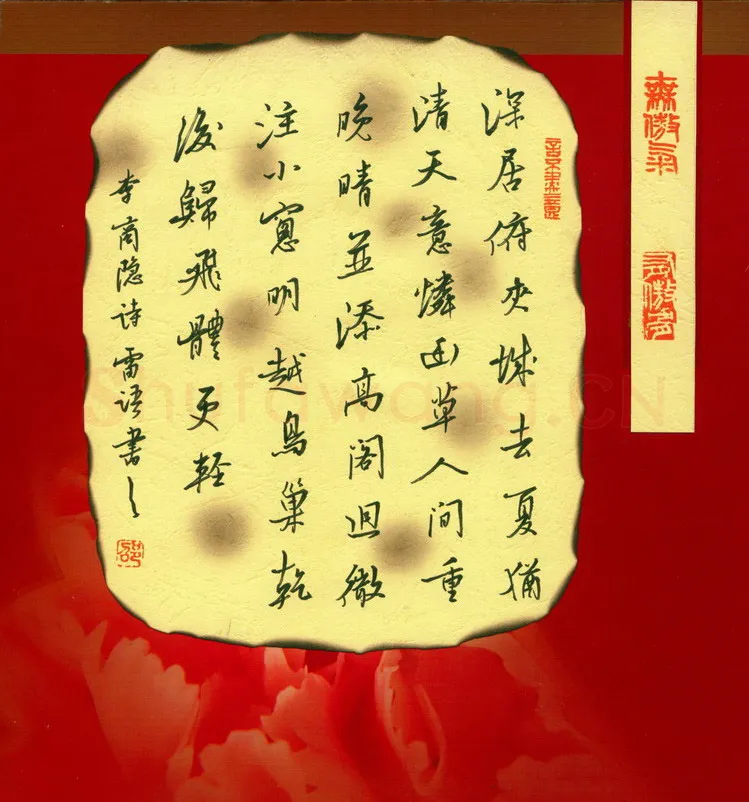 無傲氣
有傲骨
深居俯夾城去夏猶
清天意憐幽草人間重
晚晴並添高閣迥微
注小窻明越鳥巢乾
後歸飛體更輕
李商隐诗雷语書之
Shufawang.CN